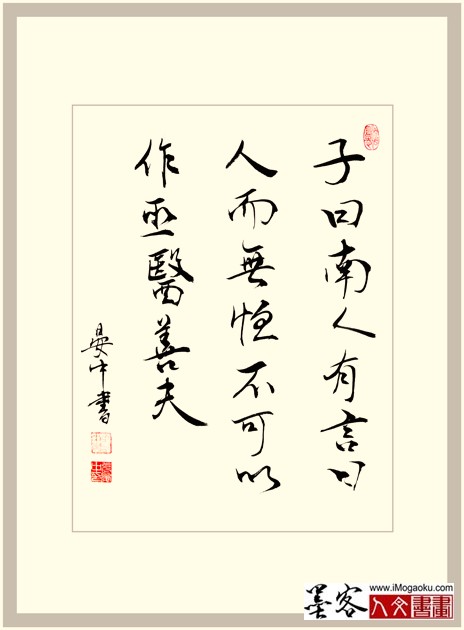 子曰南人有言曰
人而無恒不可以
作巫醫善夫
晏中書
墨客
www.iMogaoku.com
人文書畫